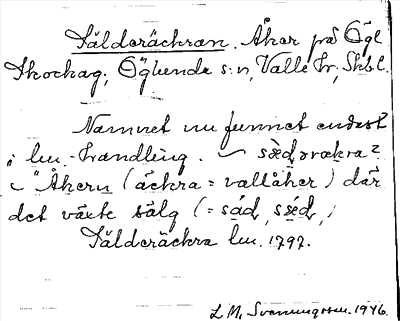 Sälderäckran. Åker på Ögl
Skochag; Öglunda s:n, Valle hr, Skbl.
Namnet nu funnet endast
i lm. handling. ~ sæ̀dərakra?
~ "Åkern (äckra = vallåker) där
det växte sälg (= sád, sǽd,)
Sälderäckra lm. 1797.
L M. Svenungsson. 1946.